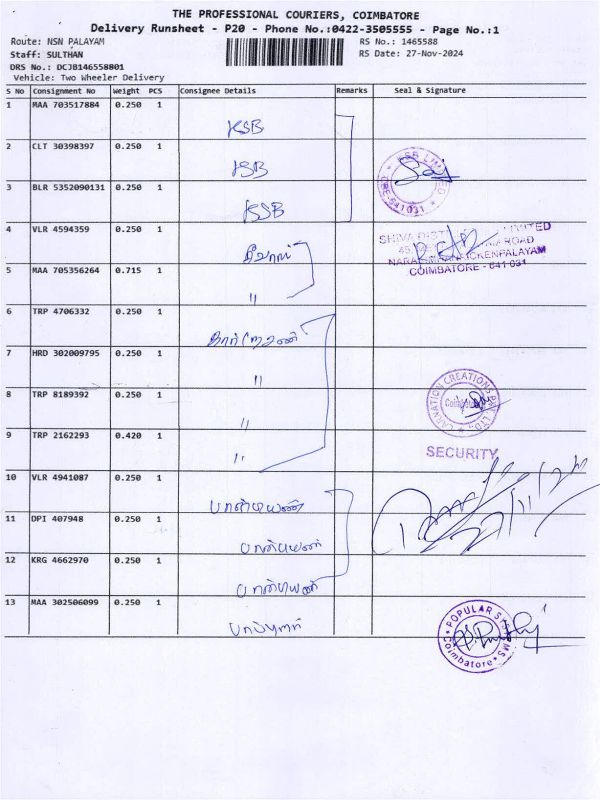 THE PROFESSIONAL COURIERS, COIMBATORE
Delivery Runsheet - P20 - Phone No.:0422-3505555 - Page No.:1
Route: NSN PALAYAM
RS No.: 1465588
Staff: SULTHAN
RS Date: 27-Nov-2024
DRS No.: DCJB146558801
Vehicle: Two Wheeler Delivery
S No Consignment No Weight PCS Consignee Details Remarks Seal & Signature
1 MAA 703517884 0.250 1
KSB
2 CLT 30398397 0.250 1
KSB
3 BLR 5352090131 0.250 1
KSB
KSB LIMITED
CBE-641 031
4 VLR 4594359 0.250 1
சிவா
SHIVA LIMITED
ROAD
COIMBATORE - 641 031
5 MAA 705356264 0.715 1
"
6 TRP 4706332 0.250 1
7 HRD 302009795 0.250 1
"
8 TRP 8189392 0.250 1
"
CARNATION CREATIONS PVT LTD.
Coimbatore
9 TRP 2162293 0.420 1
"
SECURITY
10 VLR 4941087 0.250 1
11 DPI 407948 0.250 1
12 KRG 4662970 0.250 1
13 MAA 302506099 0.250 1
பாப்புளர்
POPULAR SYSTEMS
Coimbatore